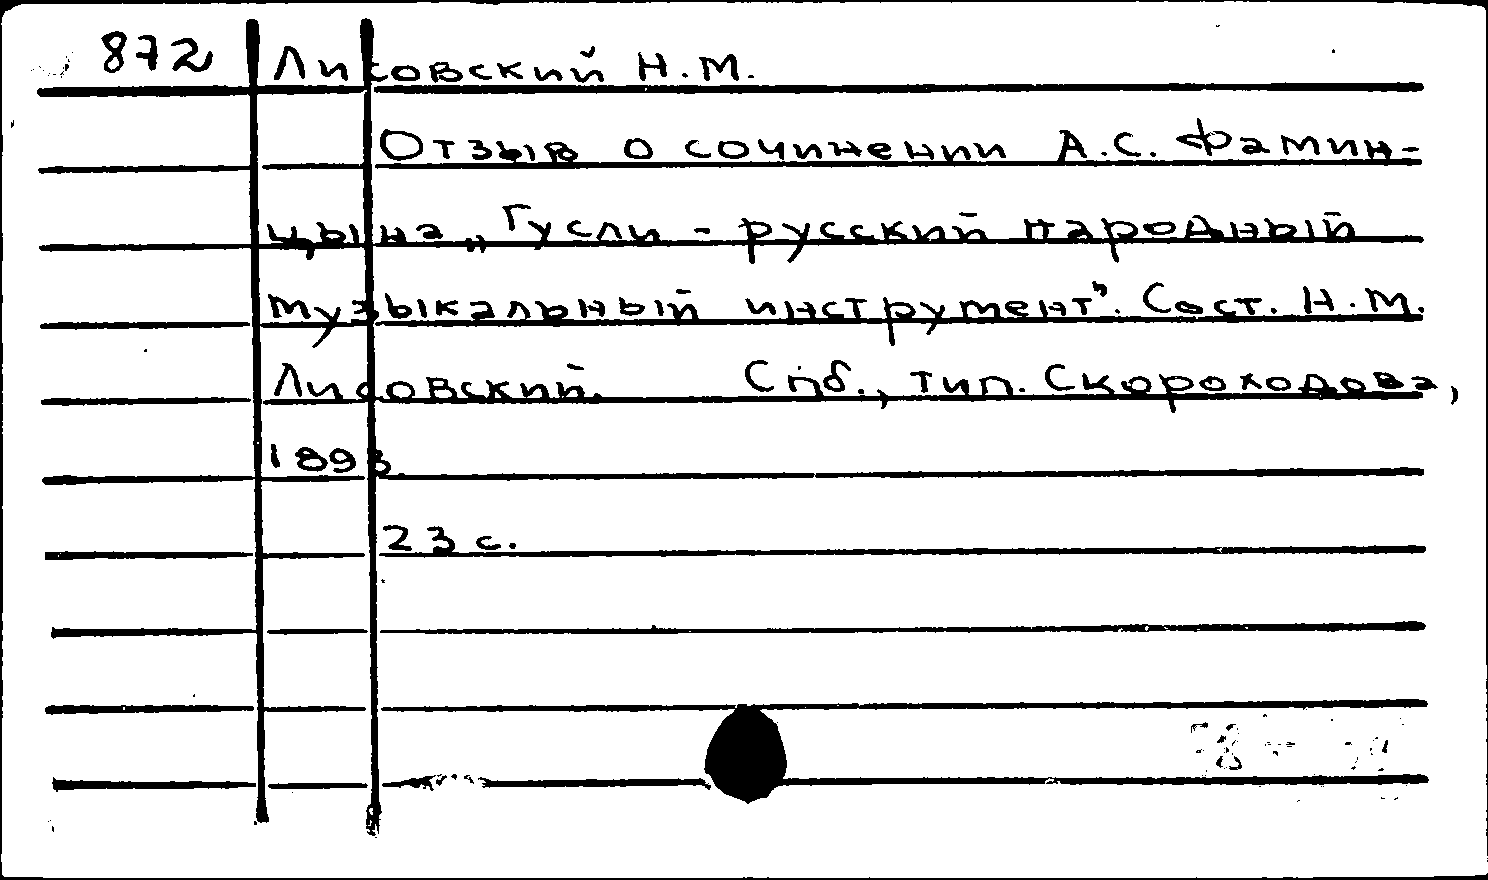 872 Лисовский Н.М.
Отзыв о сочинении А.С. Фамин-
цына „Гусли - русский народный
музыкальный инструмент". Сост. Н.М.
Лисовский. Спб., тип. Скороходова,
1893.
23 с.